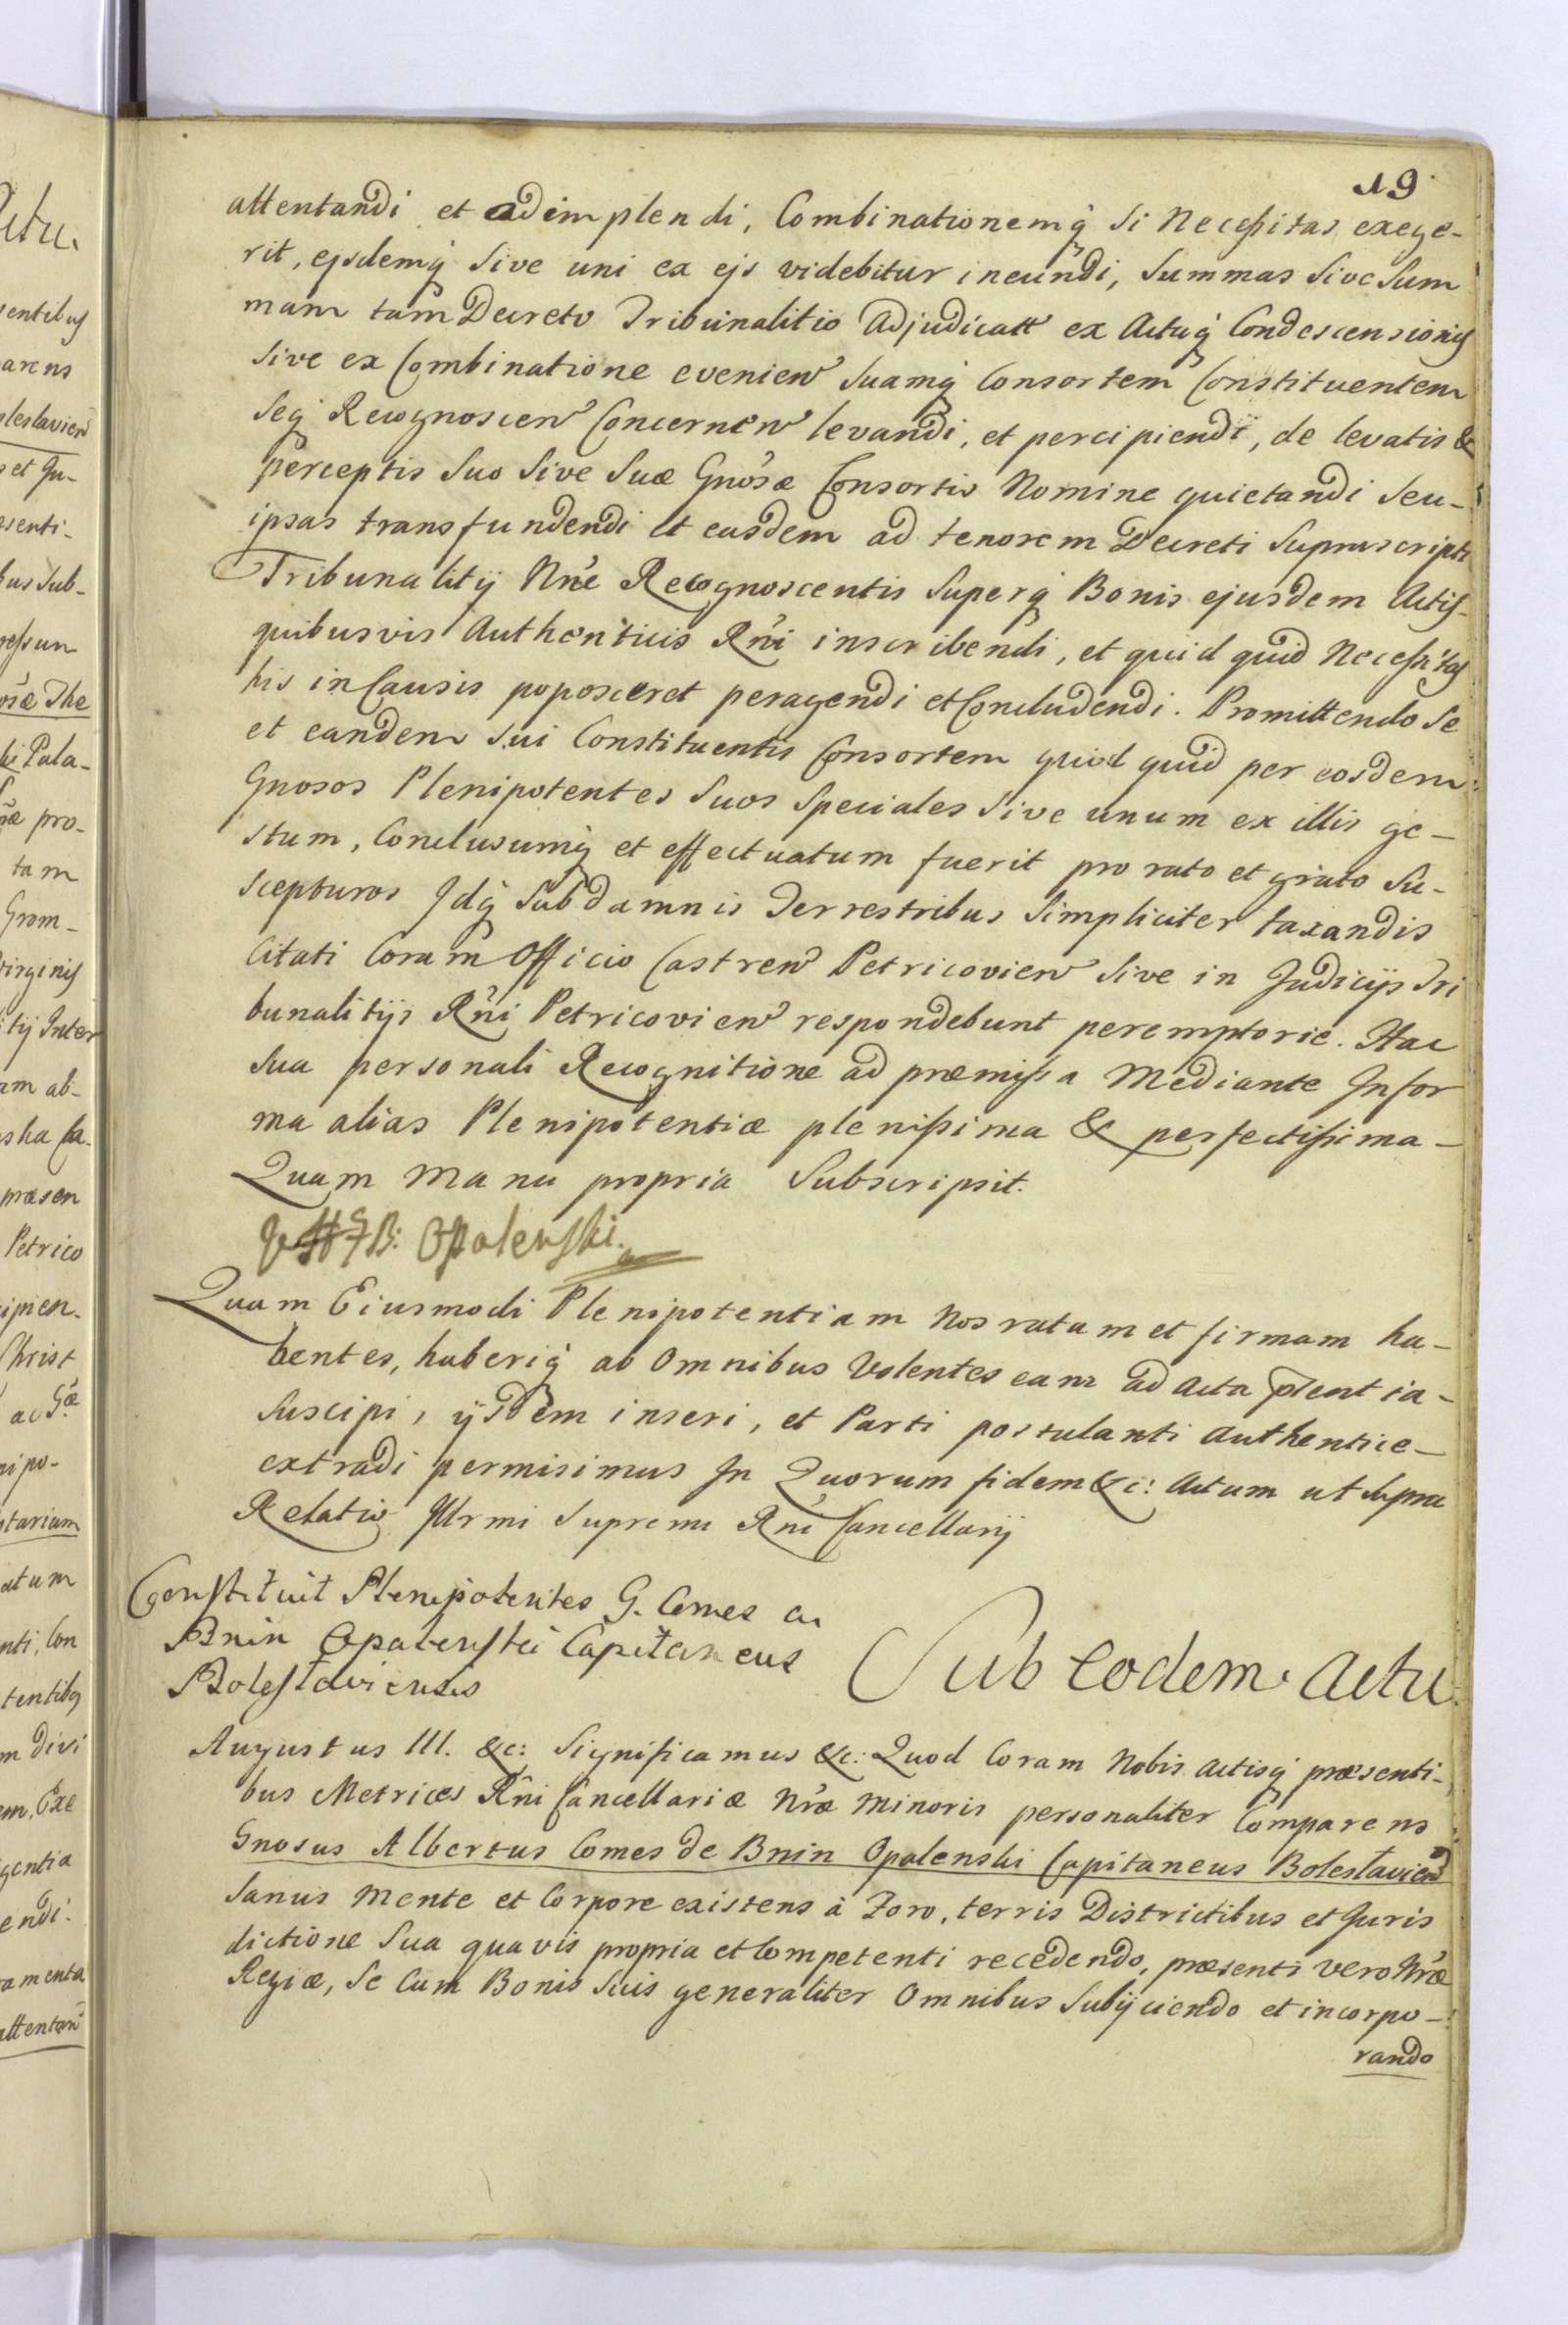 19
attentandi et adimplendi, Combinationemq́ si Necessitas exege-
rit, ejsdemq́ sive uni ex ejs videbitur ineundi, summas sive sum
mam tam Decreto Tribunalitio Adjudicatt ex Actuq́ Condescensionis
sive ex Combinatione evenien suamq́ Consortem Constituentem
seq́ Recognoscen Concernen levandi, et percipiendi, de levatis &
perceptis suo sive suæ Gnósæ Consortis Nomine quietandi seu-
ipsas transfundendi et easdem ad tenorem Decreti supra scripti
Tribunalitij Nrẽ Recognoscentis superq́ Bonis ejusdem Actis-
quibusvis Authenticis Rńi inscribendi, et quid quid Necessitas
his in Causis poposceret peragendi et Concludendi. Promittendo se
et eandem sui Constituentis Consortem quid quid per eosdem
Gnosos Plenipotentes suos speciales sive unum ex illis ge-
stum, Conclusumq́ et effectuatum fuerit pro rato et grato su-
scepturos Idq́ sub damnis Terrestribus simpliciter taxandis
Citati Coram Officio Castren Petricovien sive in Judicijs Tri
bunalitijs Rńi Petricovien respondebunt peremptorie. Hac
sua personali Recognitione ad præmissa Mediante In for
ma alias Plenipotentiæ plenissima & perfectissima-
Quam manu propria subscripsit.
B: Opalenski.
Quam Eiusmodi Plenipotentiam Nos ratam et firmam ha-
bentes, haberiq́ ab Omnibus Volentes eam ad Acta p̃lentia-
suscipi, ijsdem inseri, et Parti postulanti authentice-
extradi permisimus In Quorum fidem &c: Actum ut supra
Relatio Illrmi Supremi Rńi Cancellarij
Constituit Plenipotentes G. Comes a
Bnin Opalenski Capitaneus
Bolestaviensis
Sub Eodem Actu
Augustus III. &c: Significamus &c: Quod Coram Nobis Actisq́ præsenti-
bus Metrices Rńi Cancellariæ Nræ Minoris personaliter Comparens
Gnosus Albertus Comes de Bnin Opalenski Capitaneus Bolestavien
sanus mente et Corpore existens à Foro, terris Districtibus et Juris
dictione sua quavis propria et Competenti recedendo, præsenti vero Nræ
Regiæ, se Cum Bonis suis generaliter Omnibus subijciendo et incorpo-
rando